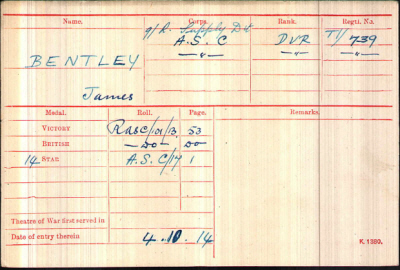 Name. Corps. Rank. Regtl. No.
9/R. Supply Dt
BENTLEY A.S.C DVR T1/739
—„— —„— —„—
James
Medal. Roll. Page. Remarks.
VICTORY RASC/101B 53
BRITISH —DO— DO
14 STAR A.S.C/17 1
Theatre of War first served in
Date of entry therein 4.10.14
K. 1380.